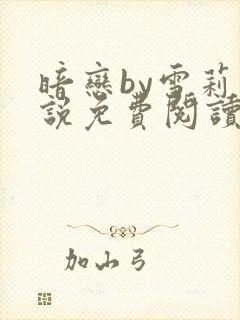 暗戀by雪莉
說免費閱讀
加山弓